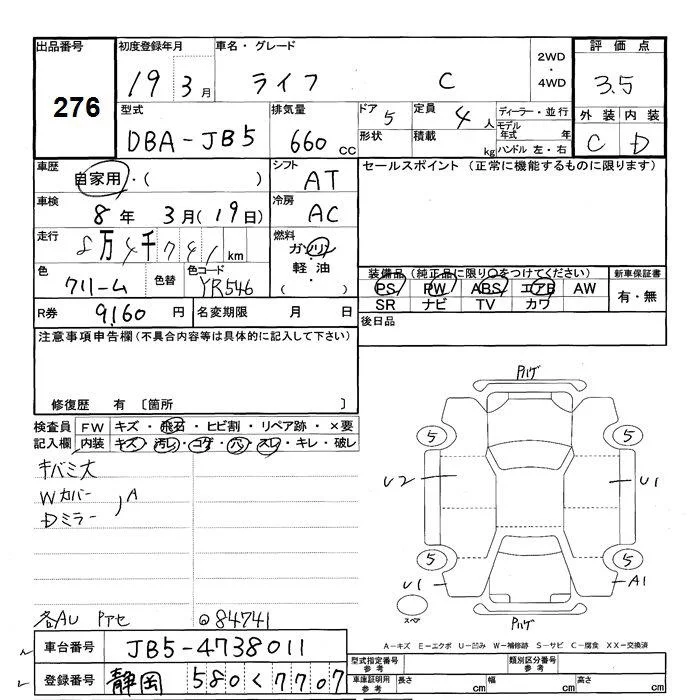 出品番号 276
初度登録年月 19 3月
車名・グレード ライフ C
2WD・4WD
評価点 3.5
外装 C 内装 D
型式 DBA-JB5
排気量 660 CC
ドア 5
形状
定員 4人
積載 kg
ディーラー・並行
モデル年式 年
ハンドル 左・右
車歴 自家用・( )
シフト AT
セールスポイント (正常に機能するものに限ります)
車検 8年 3月(19日)
冷房 AC
走行 8万4千741km
燃料 ガソリン 軽油 ( )
色 クリーム 色替 色コード YR546
装備品 (純正品に限り○をつけてください)
PS PW ABS エアB AW
SR ナビ TV カワ
新車保証書 有・無
R券 9,160円
名変期限 月 日
後日品
注意事項申告欄(不具合内容等は具体的に記入して下さい)
修復歴 有 〔箇所 〕
検査員記入欄
FW キズ・飛石・ヒビ割・リペア跡・×要
内装 キズ・汚レ・コゲ・穴・スレ・キレ・破レ
キバミ大
Wカバー
Dミラー
A
各AU Pアセ ◎84741
Pハゲ
5 5
U2 U1
5 5
U1 A1
スペア
Pハゲ
A-キズ E-エクボ U-凹み W-補修跡 S-サビ C-腐食 XX-交換済
車台番号 JB5-4738011
登録番号 静岡 580 く 7707
型式指定番号 参考
類別区分番号 参考
車庫証明用 参考 長さ cm 幅 cm 高さ cm